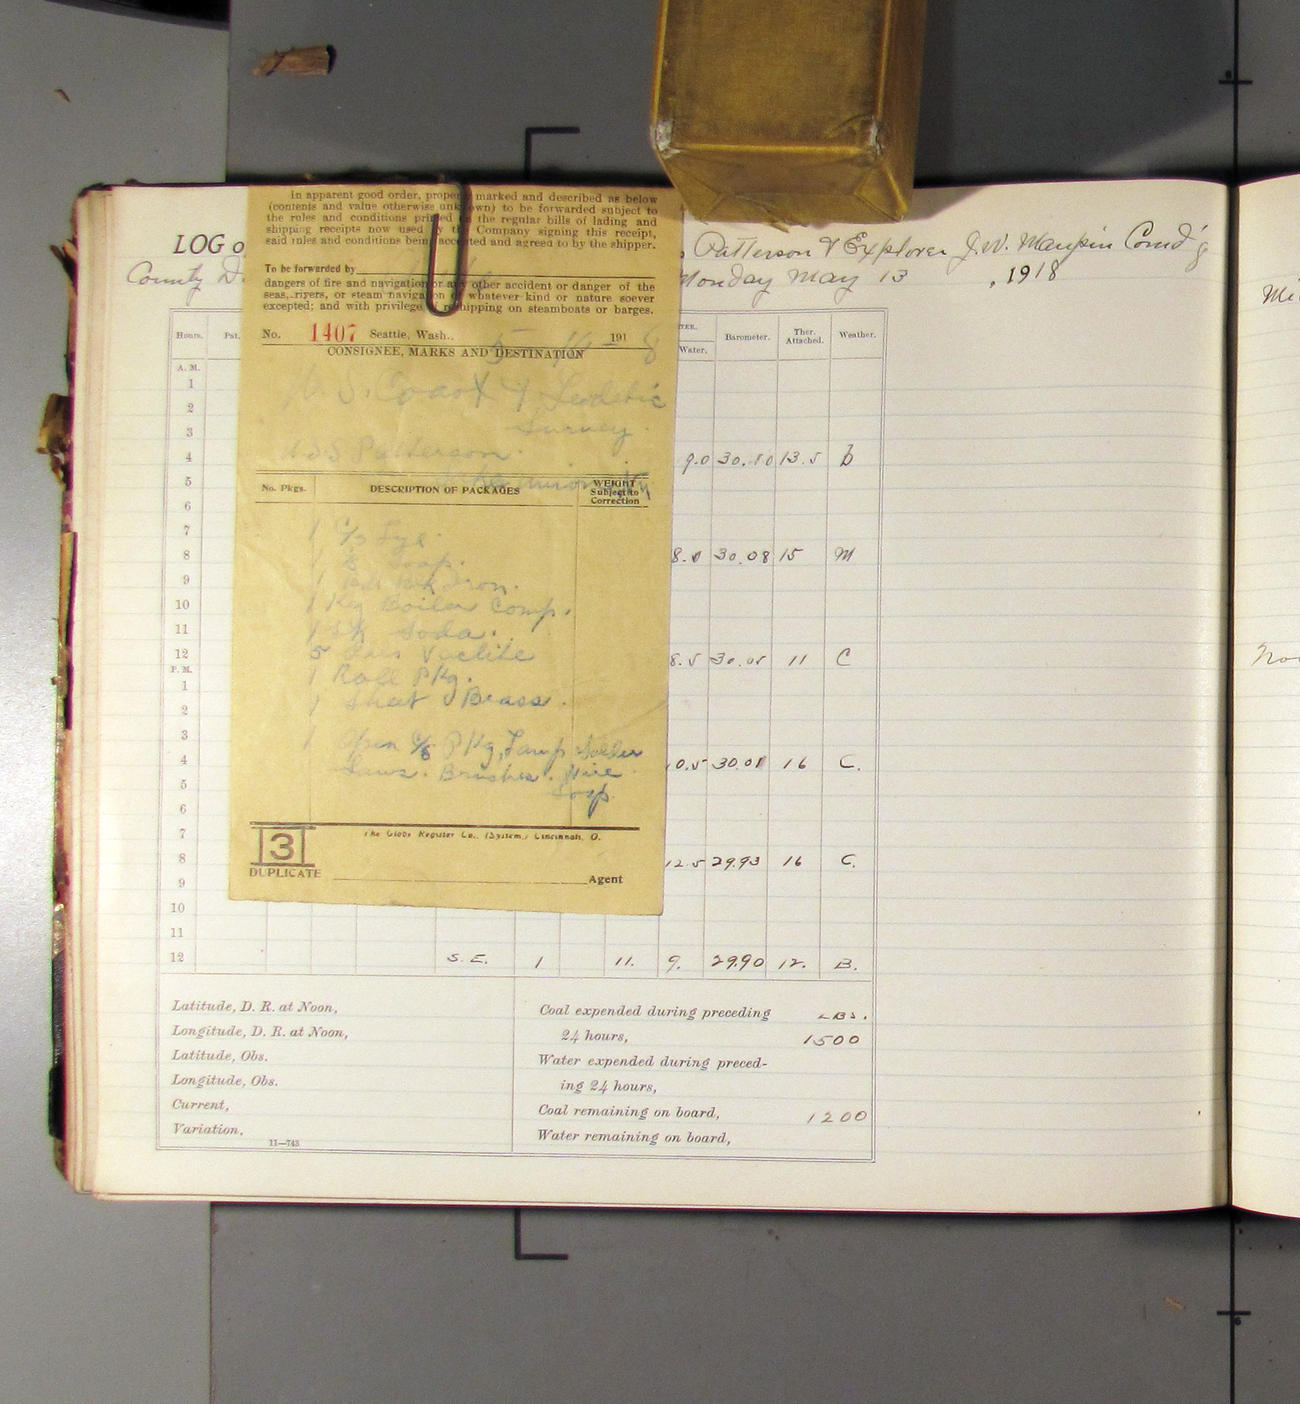 LOG o
Patterson & Explorer J.W. Maupin Comd'g
County D
Monday May 13, 1918
In apparent good order, proper marked and described as below
(contents and value otherwise unknown) to be forwarded subject to
the rules and conditions printed on the regular bills of lading and
shipping receipts now used by the Company signing this receipt,
said rules and conditions being accepted and agreed to by the shipper.
To be forwarded by
dangers of fire and navigation or any other accident or danger of the
seas, rivers, or steam navigation of whatever kind or nature soever
excepted; and with privilege of reshipping on steamboats or barges.
No. 1407 Seattle, Wash., 5 191 8
CONSIGNEE, MARKS AND DESTINATION
U. S. Coast & Geodetic
Survey.
USS Patterson.
No. Pkgs. DESCRIPTION OF PACKAGES WEIGHT
Subject to
Correction
1 C/S Lye.
1 Soap.
1 Iron.
1 Keg Boiler Comp.
1 Sk Soda.
5
1 Roll Pkg.
1 Sheet Brass.
1 Open Pkg, Lamp Solder
Saws. Brushes. Wire
Soap.
The Globe Register Co., (System,) Cincinnati, O.
3
DUPLICATE
Agent
Hours. Pat. TER. Water. Barometer. Ther. Attached. Weather.
A. M.
1
2
3
4 9.0 30.10 13.5 b
5
6
7
8 8.0 30.08 15 M
9
10
11
12 8.5 30.05 11 C
P. M.
1
2
3
4 0.5 30.01 16 C.
5
6
7
8 12.5 29.93 16 C.
9
10
11
12 S. E. 1 11. 9. 29.90 12. B.
Latitude, D. R. at Noon,
Longitude, D. R. at Noon,
Latitude, Obs.
Longitude, Obs.
Current,
Variation,
11—743
Coal expended during preceding LBS.
24 hours, 1500
Water expended during preced-
ing 24 hours,
Coal remaining on board, 1200
Water remaining on board,